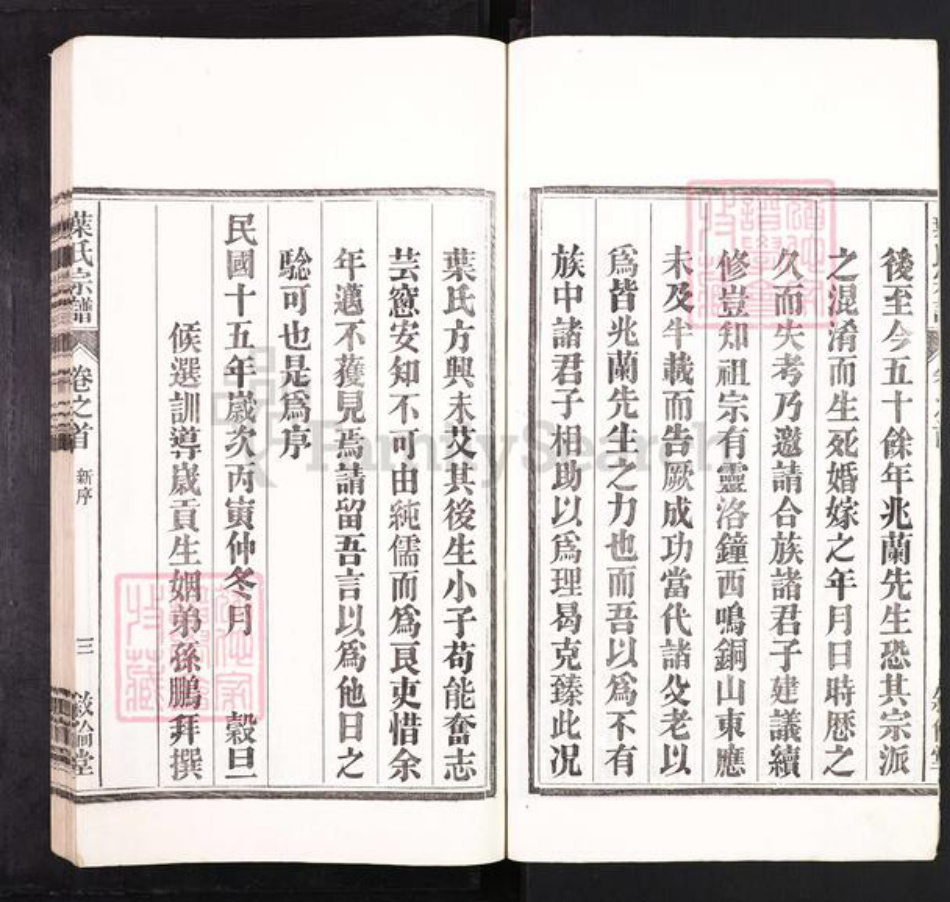 後至今五十餘年兆蘭先生恐其宗派
之混淆而生死婚嫁之年月日時歷之
久而失考乃邀請合族諸君子建議續
修豈知祖宗有靈洛鐘西鳴銅山東應
未及半載而告厥成功當代諸父老以
爲皆兆蘭先生之力也而吾以爲不有
族中諸君子相助以爲理曷克臻此况
葉氏方興未艾其後生小子苟能奮志
芸窻安知不可由純儒而爲良吏惜余
年邁不獲見焉請留吾言以爲他日之
驗可也是爲序
民國十五年歲次丙寅仲冬月 穀旦
候選訓導歲貢生姻弟孫鵬拜撰
葉氏宗譜 卷之首 新序 三 堂
FamilySearch